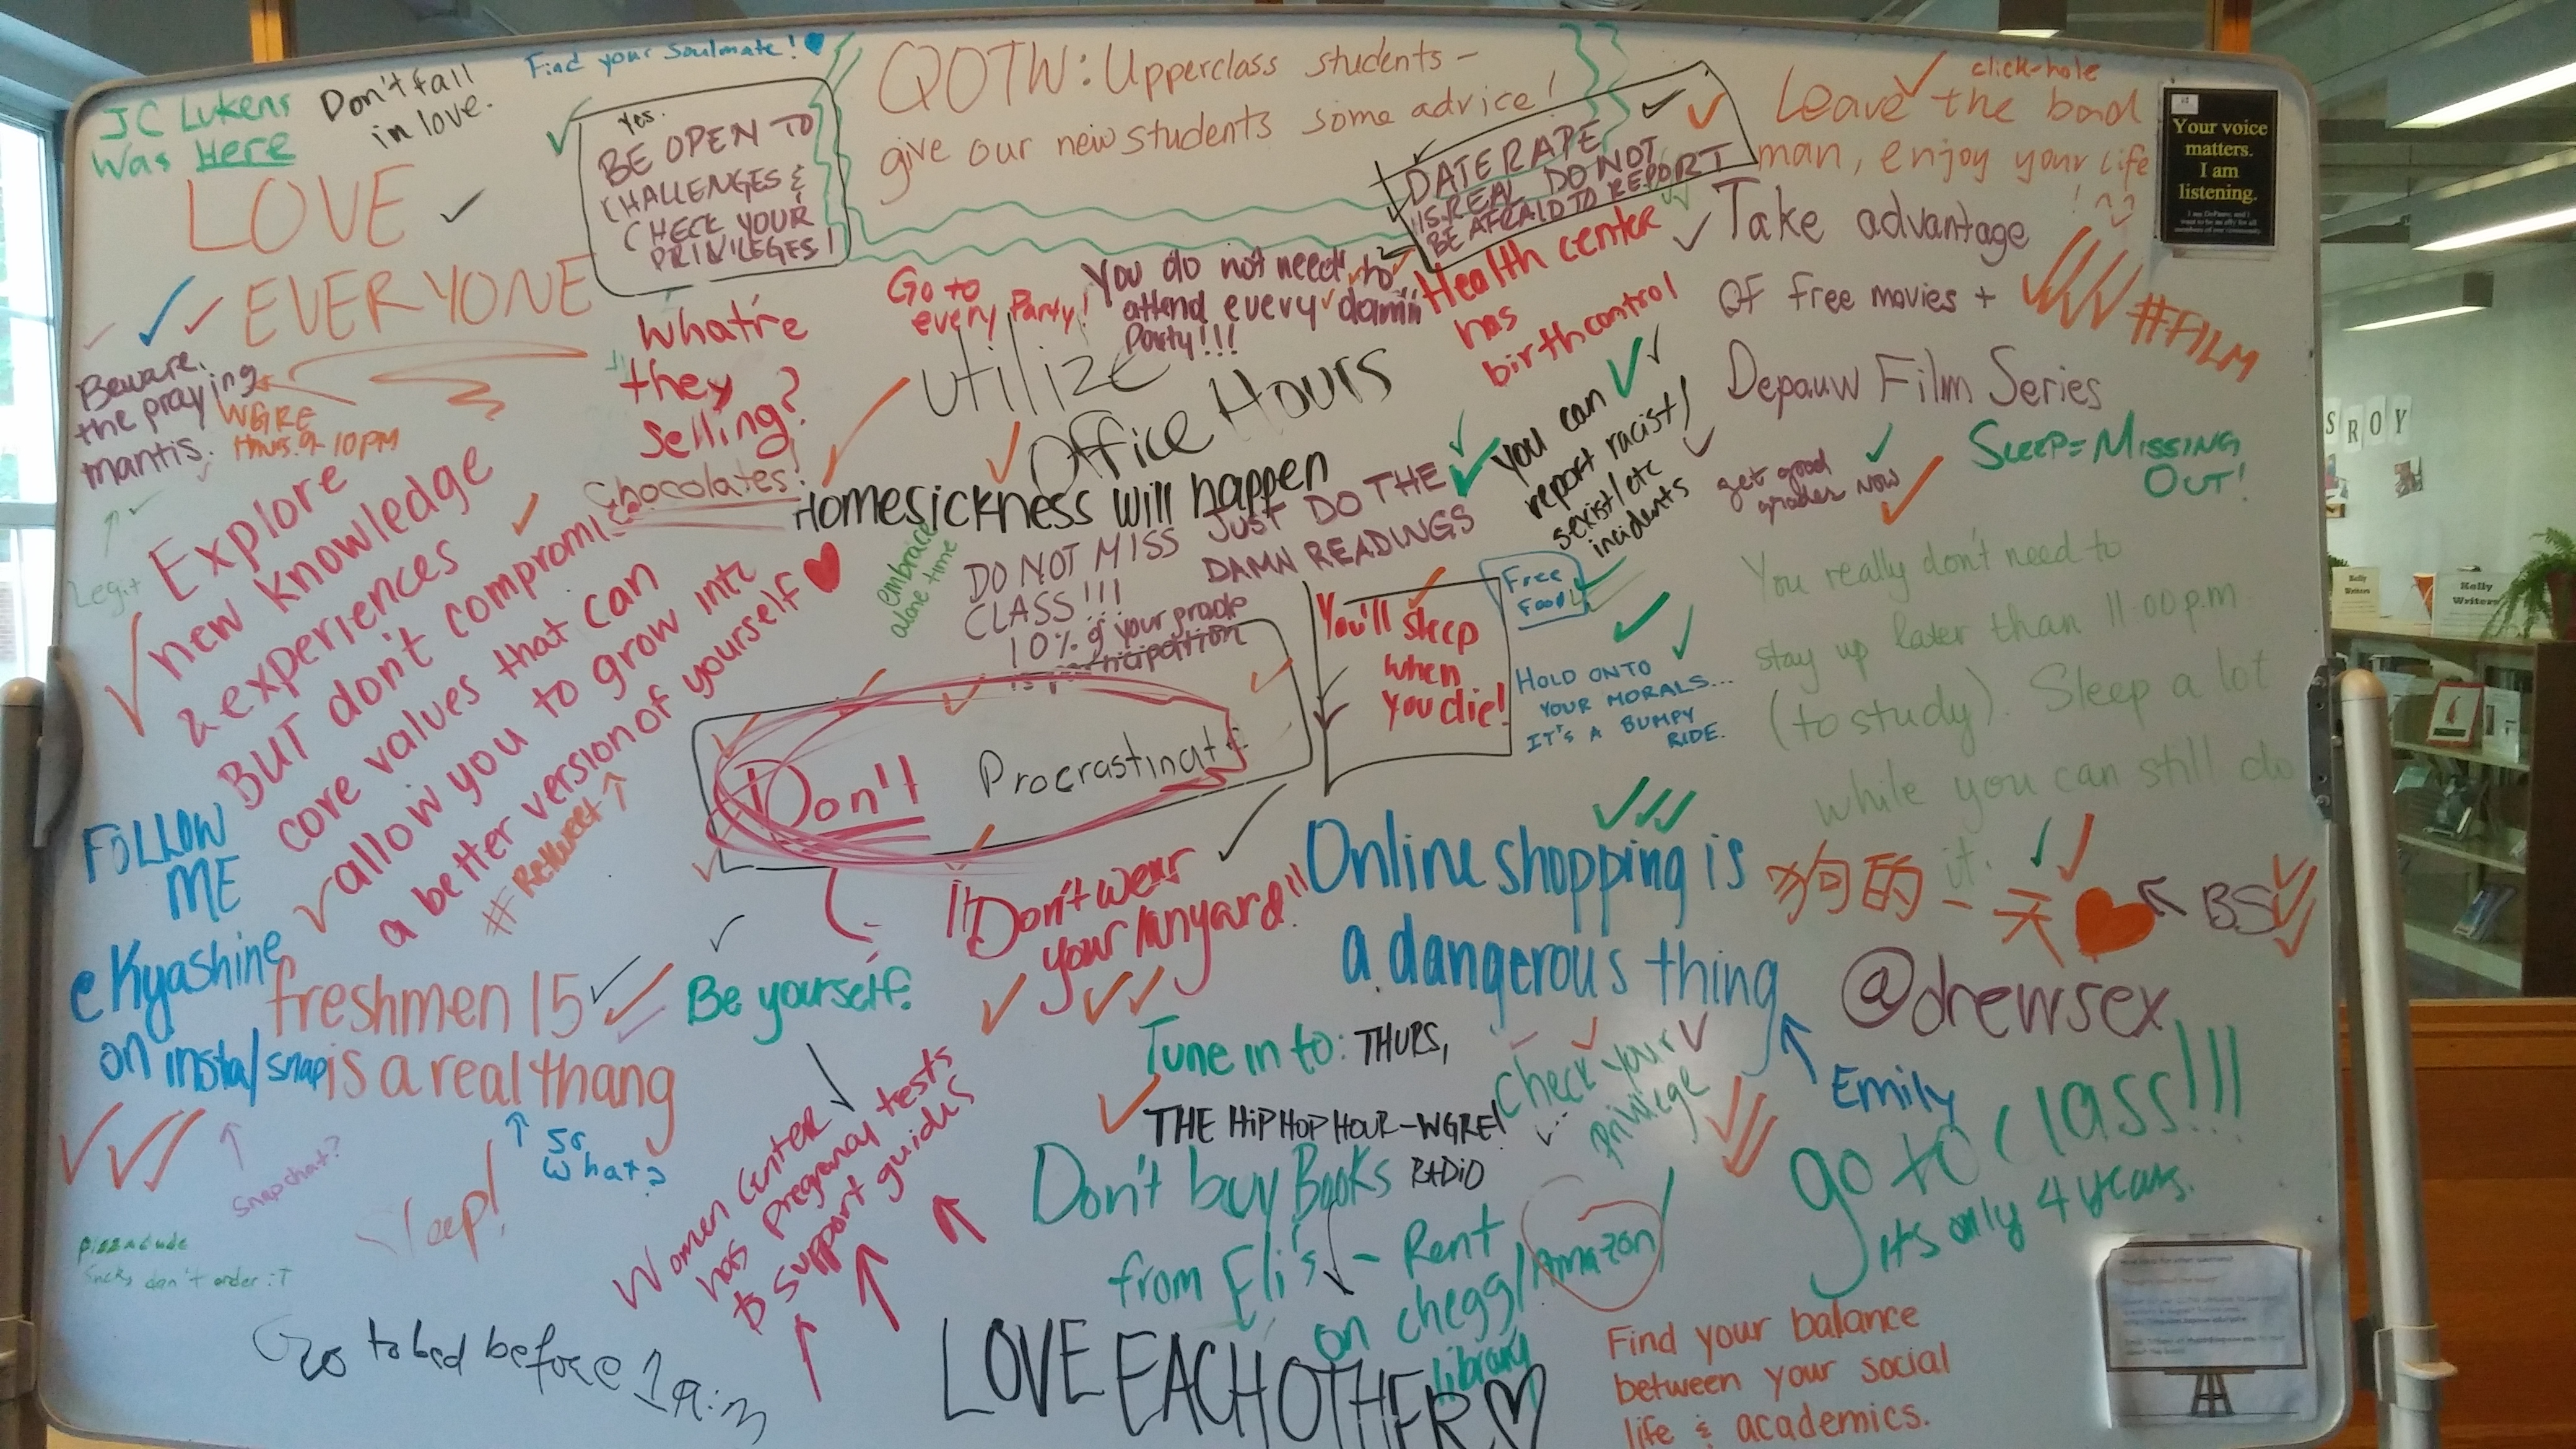 Find your Soulmate!
JC Lukens
Was Here
Don't fall
in love.
Yes.
BE OPEN TO
CHALLENGES &
CHECK YOUR
PRIVILEGES!
QOTW: Upperclass students -
give our new students some advice!
DATE RAPE
IS REAL DO NOT
BE AFRAID TO REPORT
click-hole
Leave the bad
man, enjoy your life
Your voice
matters.
I am
listening.
LOVE
EVERYONE
Beware.
the praying
mantis.
WGRE
Thurs. 9-10PM
Legit
What're
they
Selling?
Chocolates!
Go to
every Party!
You do not need to
attend every damn
Party!!!
Health center
has
birth control
Take advantage
of free movies +
Depauw Film Series
#FILM
utilize
Office Hours
Homesickness will happen
embrace
alone time
DO NOT MISS
CLASS!!!
10% of your grade
is participation
JUST DO THE
DAMN READINGS
you can
report racist/
sexist/etc
incidents
get good
grades now
SLEEP = MISSING
OUT!
Explore
new knowledge
& experiences
BUT don't compromise
core values that can
allow you to grow into
a better version of yourself
#Retweet
Free
Food
You'll sleep
when
you die!
HOLD ONTO
YOUR MORALS...
IT'S A BUMPY
RIDE.
You really don't need to
stay up later than 11:00 p.m
(to study). Sleep a lot
while you can still do
it.
Don't Procrastinate
FOLLOW
ME
@Kyashine
on insta/snap
snapchat?
freshmen 15
is a real thang
So
what?
Be yourself.
"Don't wear
your lanyard."
Online shopping is
a dangerous thing
Emily
狗的一天
BS
@drewsex
Tune in to: THURS,
THE HIP HOP HOUR-WGRE!
RADIO
Check your
privilege
go to class!!!
it's only 4 years.
Sleep!
pizzadude
sucks don't order :T
Women Center
has pregnancy tests
& support guides
Don't buy Books
from Eli's - Rent
on chegg/Amazon/
library
Go to bed before 1 a.m
LOVE EACH OTHER
Find your balance
between your social
life & academics.
SROY
Kelly
Writers
Kelly
Writers